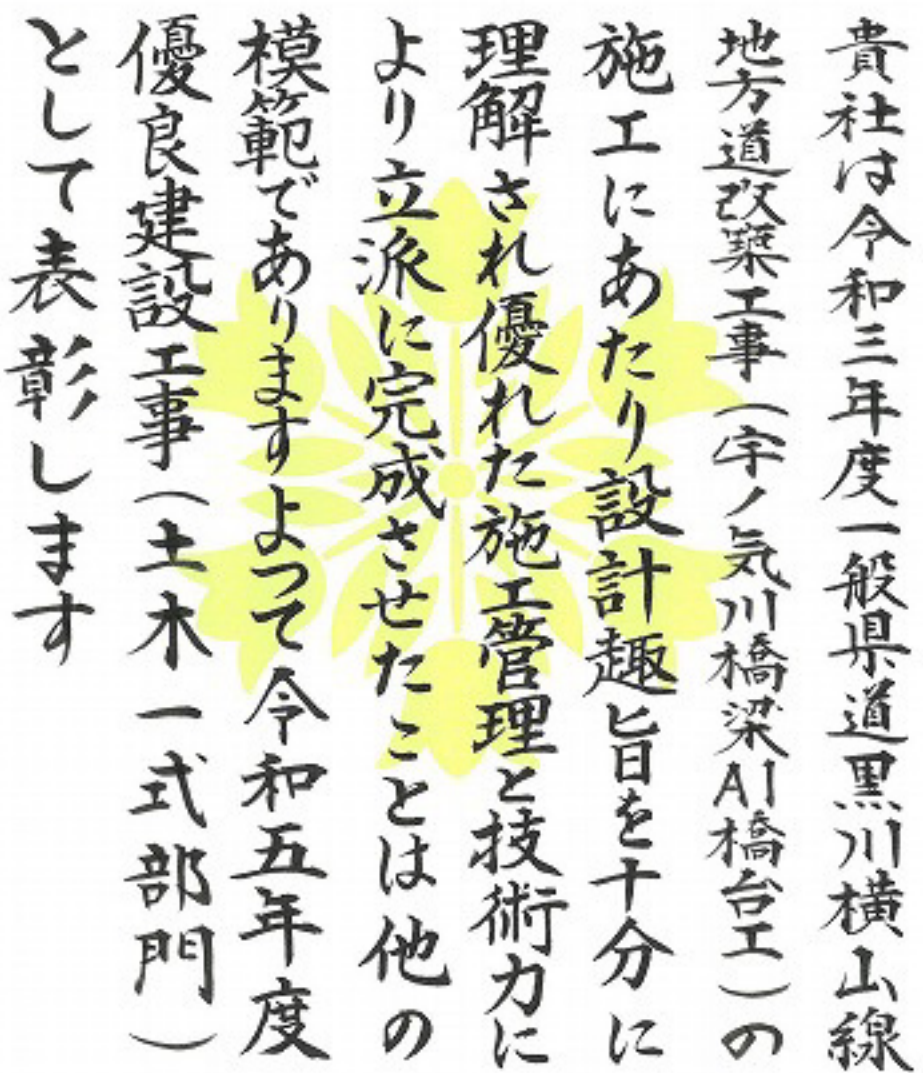 貴社は令和三年度一般県道黒川横山線
地方道改築工事（宇ノ気川橋梁A1橋台工）の
施工にあたり設計趣旨を十分に
理解され優れた施工管理と技術力に
より立派に完成させたことは他の
模範でありますよつて令和五年度
優良建設工事（土木一式部門）
として表彰します